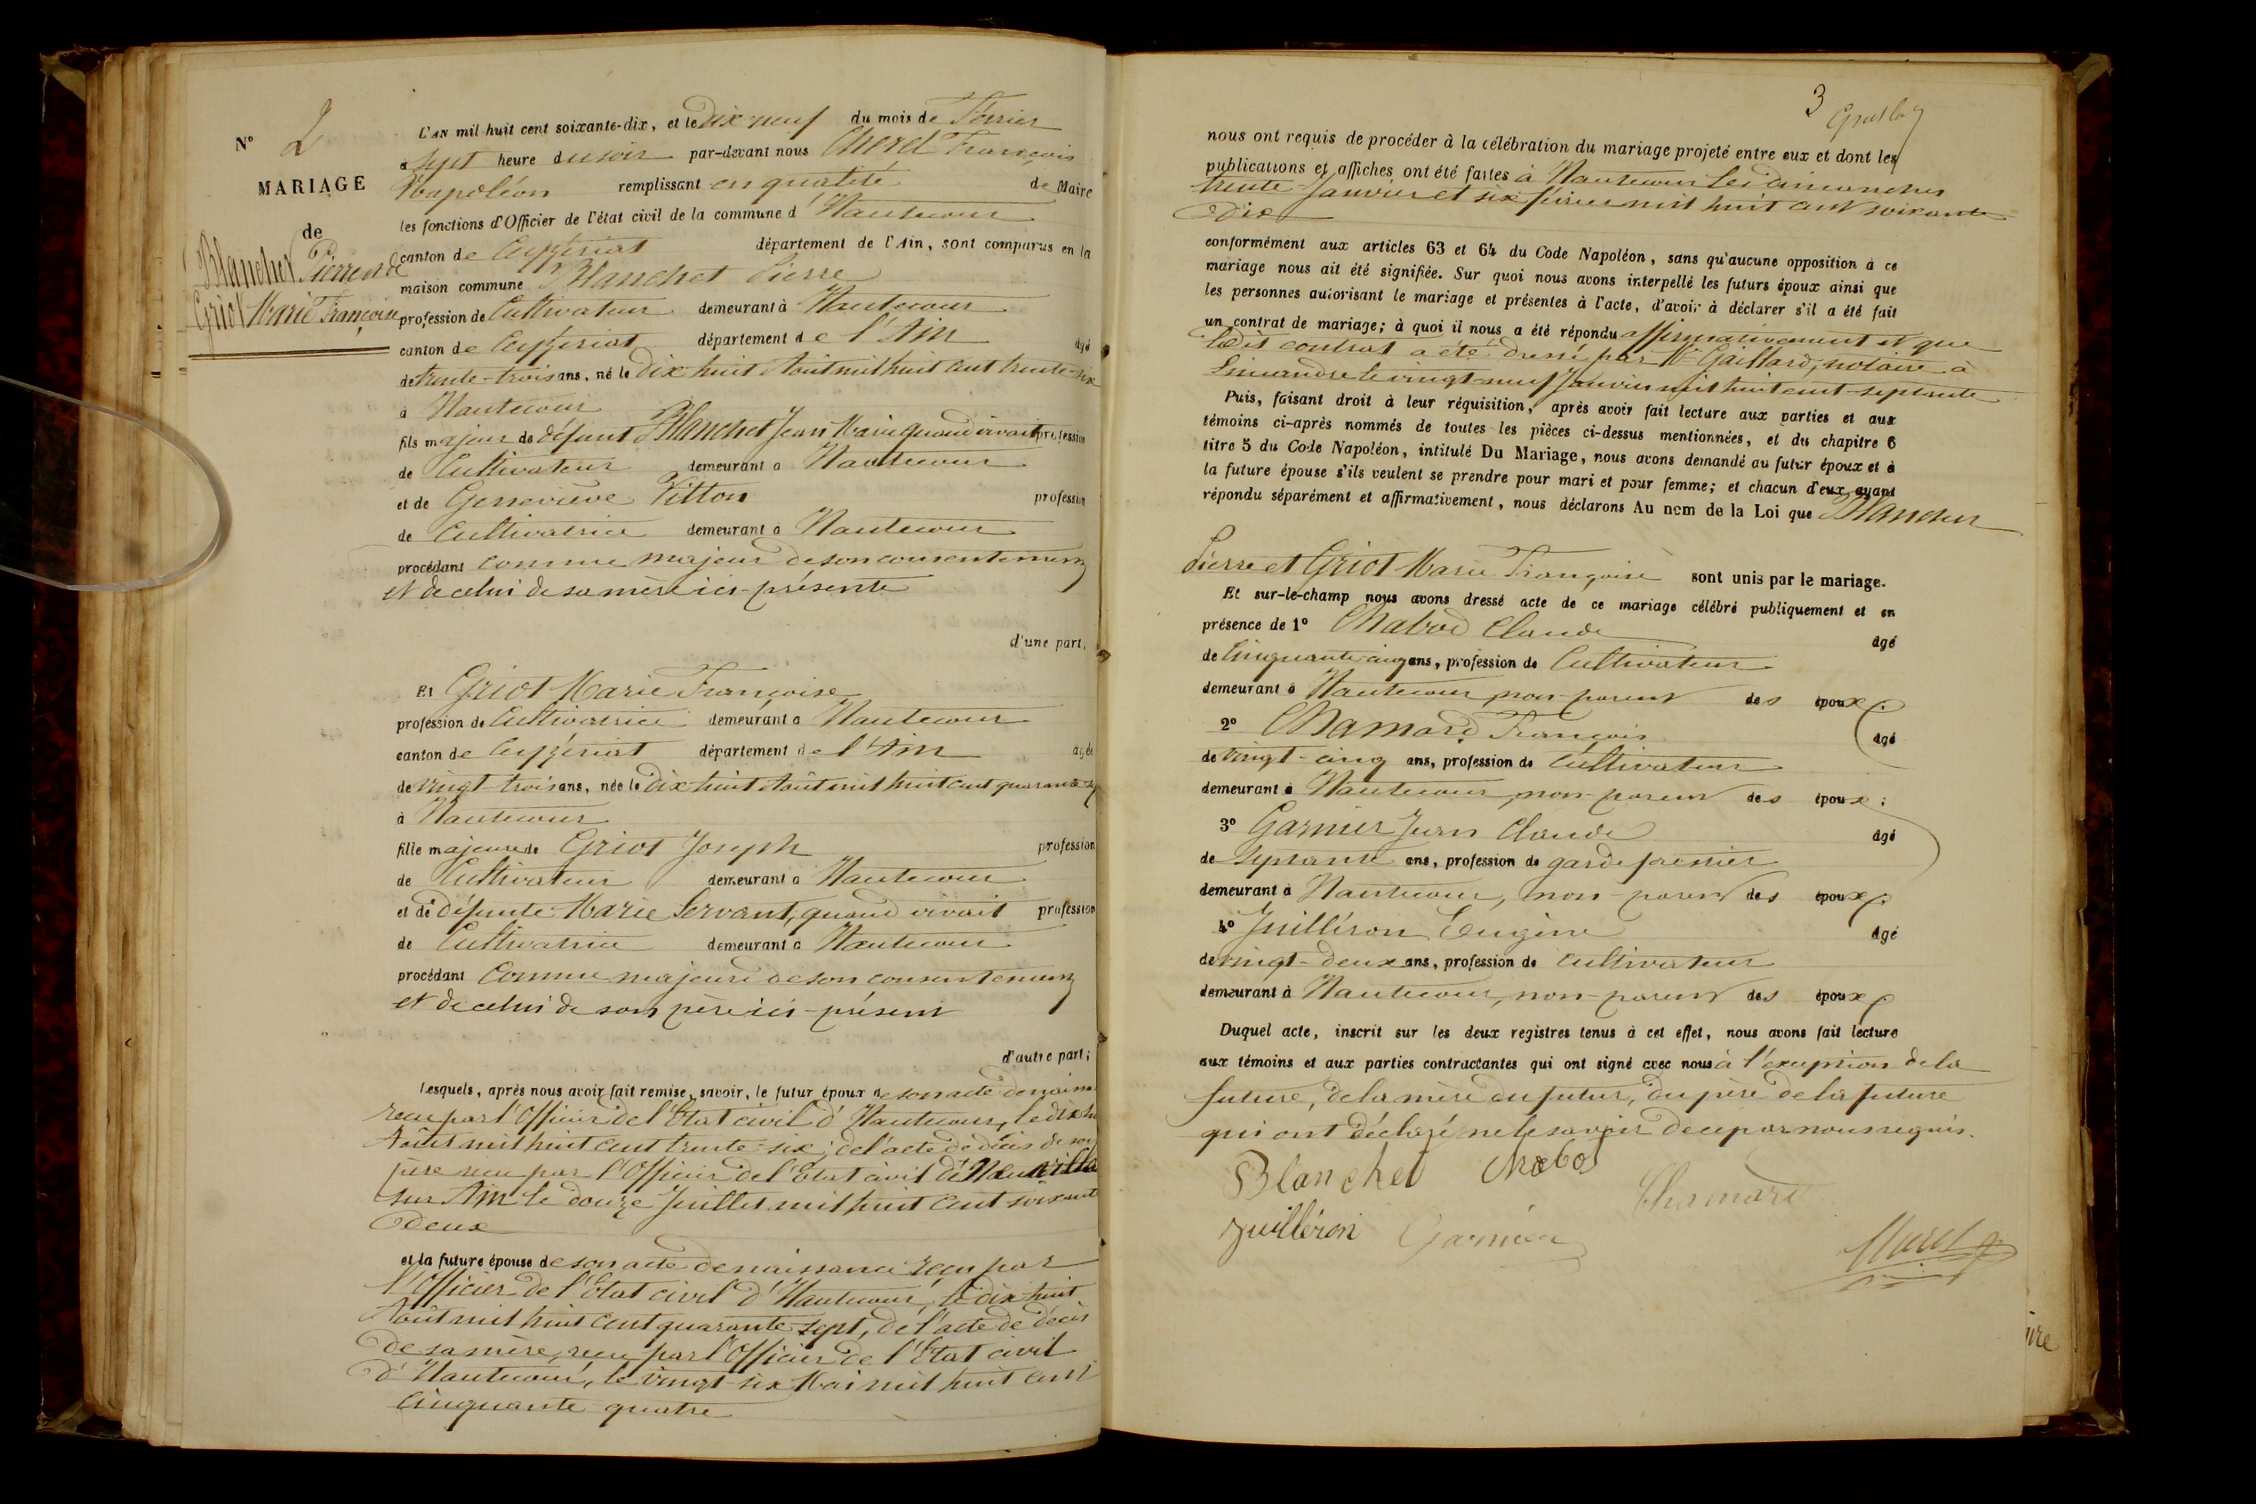 N° 2
MARIAGE
de
Blanchet Pierre et de
Griot Marie Françoise
L'AN mil huit cent soixante-dix, et le Dix neuf du mois de Février
à sept heure du soir par-devant nous Cherel François
Napoléon remplissant en qualité de Maire
les fonctions d'Officier de l'état civil de la commune d'Hautecour
canton de Ceyzériat département de l'Ain, sont comparus en la
maison commune Blanchet Pierre
profession de Cultivateur demeurant à Hautecour
canton de Ceyzériat département de l'Ain âgé
de trente-trois ans, né le Dix huit Août mil huit cent trente-six
à Hautecour
fils majeur de défunt Blanchet Jean Marie quand vivait profession
de Cultivateur demeurant à Hautecour
et de Geneviève Vitton profession
de Cultivatrice demeurant à Hautecour
procédant comme majeur de son consentement
et de celui de sa mère ici-présente
d'une part,
Et Griot Marie Françoise
profession de Cultivatrice demeurant à Hautecour
canton de Ceyzériat département de l'Ain âgée
de vingt-trois ans, née le dix huit Août mil huit cent quarante
à Hautecour
fille majeure de Griot Joseph profession
de Cultivateur demeurant à Hautecour
et de défunte Marie Servant, quand vivait profession
de Cultivatrice demeurant à Hautecour
procédant comme majeure de son consentement
et de celui de son père ici-présent
d'autre part;
Lesquels, après nous avoir fait remise, savoir, le futur époux de son acte de naiss
reçu par l'Officier de l'Etat civil d'Hautecour, le dix hu
Août mil huit cent trente-six; de l'acte de décès de son
père reçu par l'Officier de l'Etat civil de Neuville
sur Ain le douze Juillet mil huit cent soixante
deux
et la future épouse de son acte de naissance reçu par
l'Officier de l'Etat civil d'Hautecour, le dix huit
Août mil huit cent quarante-sept, de l'acte de décès
de sa mère, reçu par l'Officier de l'Etat civil
d'Hautecour, le vingt-six Mai mil huit cent
cinquante quatre
3
nous ont requis de procéder à la célébration du mariage projeté entre eux et dont les
publications et affiches ont été faites à Hautecour les dimanches
trente Janvier et six février mil huit cent soixante
Dix
conformément aux articles 63 et 64 du Code Napoléon, sans qu'aucune opposition à ce
mariage nous ait été signifiée. Sur quoi nous avons interpellé les futurs époux ainsi que
les personnes autorisant le mariage et présentes à l'acte, d'avoir à déclarer s'il a été fait
un contrat de mariage; à quoi il nous a été répondu affirmativement et que
ledit contrat a été dressé par Me Gaillard, notaire à
Simandre le vingt-neuf Janvier mil huit cent septante
Puis, faisant droit à leur réquisition, après avoir fait lecture aux parties et aux
témoins ci-après nommés de toutes les pièces ci-dessus mentionnées, et du chapitre 6
titre 5 du Code Napoléon, intitulé Du Mariage, nous avons demandé au futur époux et à
la future épouse s'ils veulent se prendre pour mari et pour femme; et chacun d'eux ayant
répondu séparément et affirmativement, nous déclarons Au nom de la Loi que Blanchet
Pierre et Griot Marie Françoise sont unis par le mariage.
Et sur-le-champ nous avons dressé acte de ce mariage célébré publiquement et en
présence de 1° Chabod Claude âgé
de Cinquante cinq ans, profession de Cultivateur
demeurant à Hautecour, non-parent des époux;
2° Chamard François âgé
de vingt-cinq ans, profession de Cultivateur
demeurant à Hautecour, non-parent des époux;
3° Garnier Jean Claude âgé
de septante ans, profession de garde forestier
demeurant à Hautecour, non-parent des époux;
4° Juilléron Eugène âgé
de vingt-deux ans, profession de cultivateur
demeurant à Hautecour, non-parent des époux
Duquel acte, inscrit sur les deux registres tenus à cet effet, nous avons fait lecture
aux témoins et aux parties contractantes qui ont signé avec nous à l'exception de la
future, de la mère du futur, du père de la future
qui ont déclaré ne le savoir de ce par nous requis.
Blanchet Chabod
Chamard
Juilléron Garnier